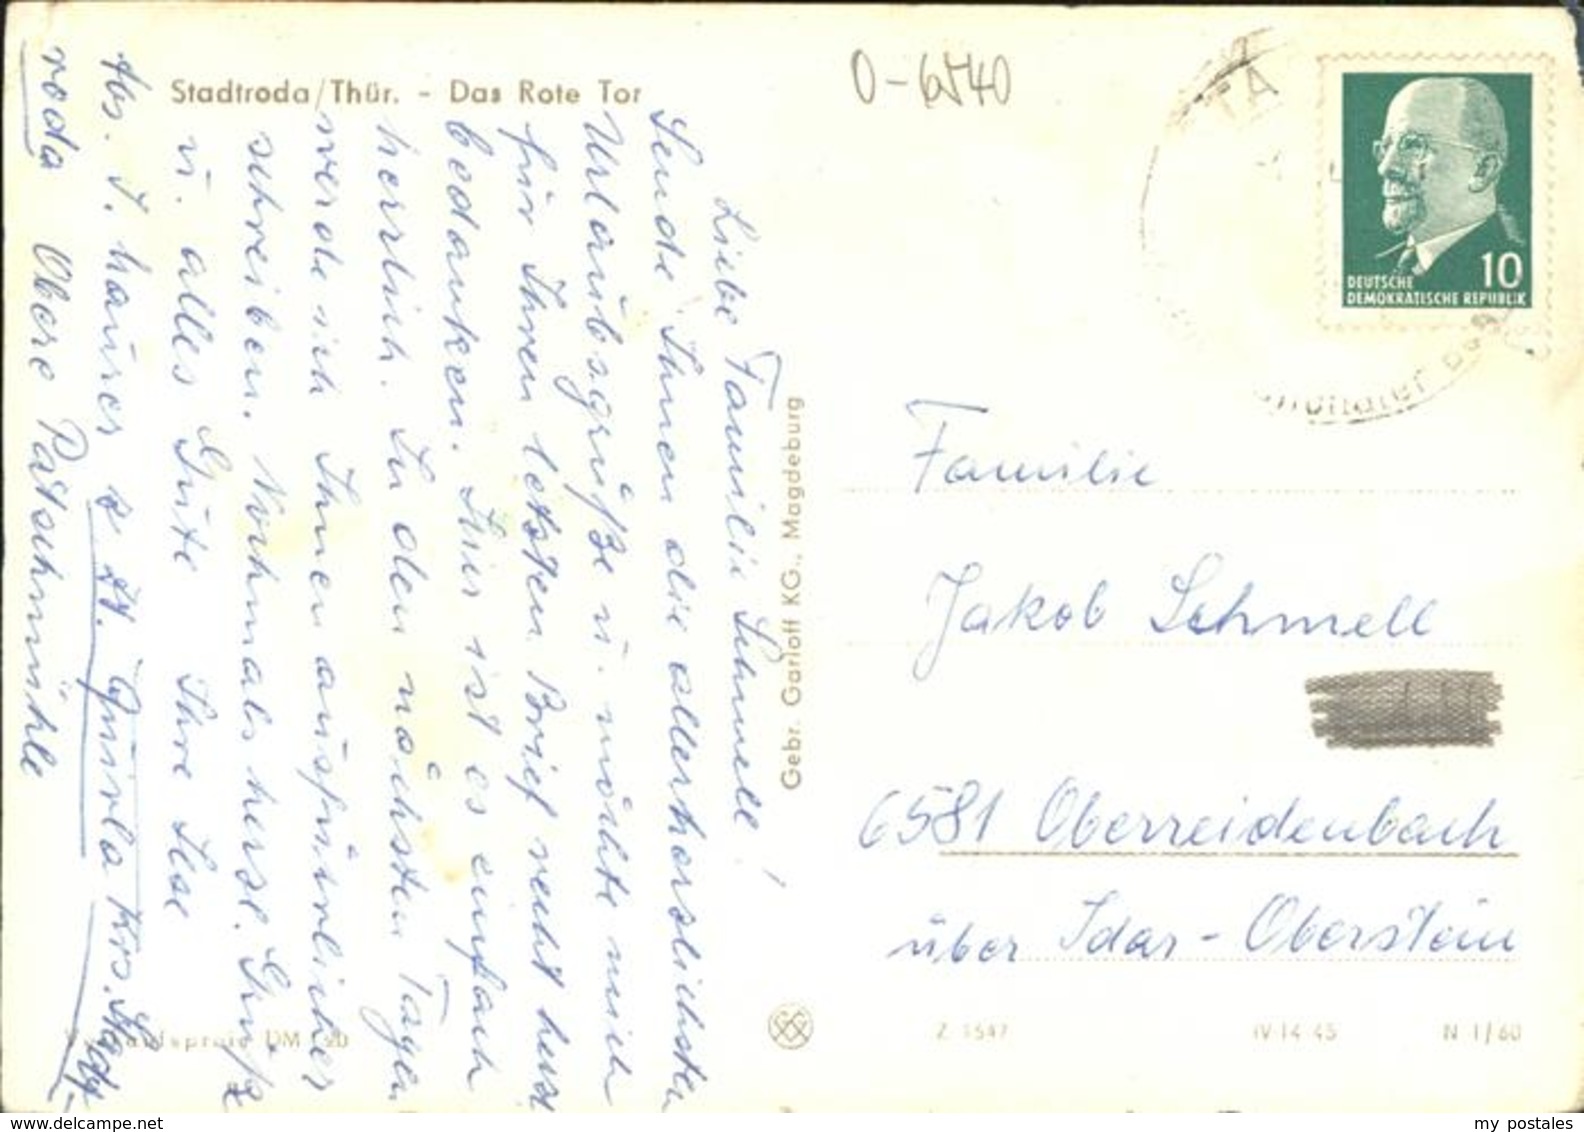 Stadtroda/Thür. - Das Rote Tor
O-6540
Liebe Familie Schmell!
Sende Ihnen die allerherzlichsten
Urlaubsgrüße u. möchte mich
für Ihren letzten Brief recht herzl.
bedanken. Hier ist es einfach
herrlich. In den nächsten Tagen
werde ich Ihnen ausführlicher
schreiben. Nochmals herzl. Grüße
u. alles Gute Ihre Ilse
Abs. I. z. Zt. Quirla Krs. Stadt-
roda Obere Patschmühle
Gebr. Garloff KG., Magdeburg
DEUTSCHE
DEMOKRATISCHE REPUBLIK
10
Familie
Jakob Schmell
6581 Oberreidenbach
über Idar-Oberstein
DM -,20
Z 1547
IV-14-45
N 1/60
www.delcampe.net
my postales